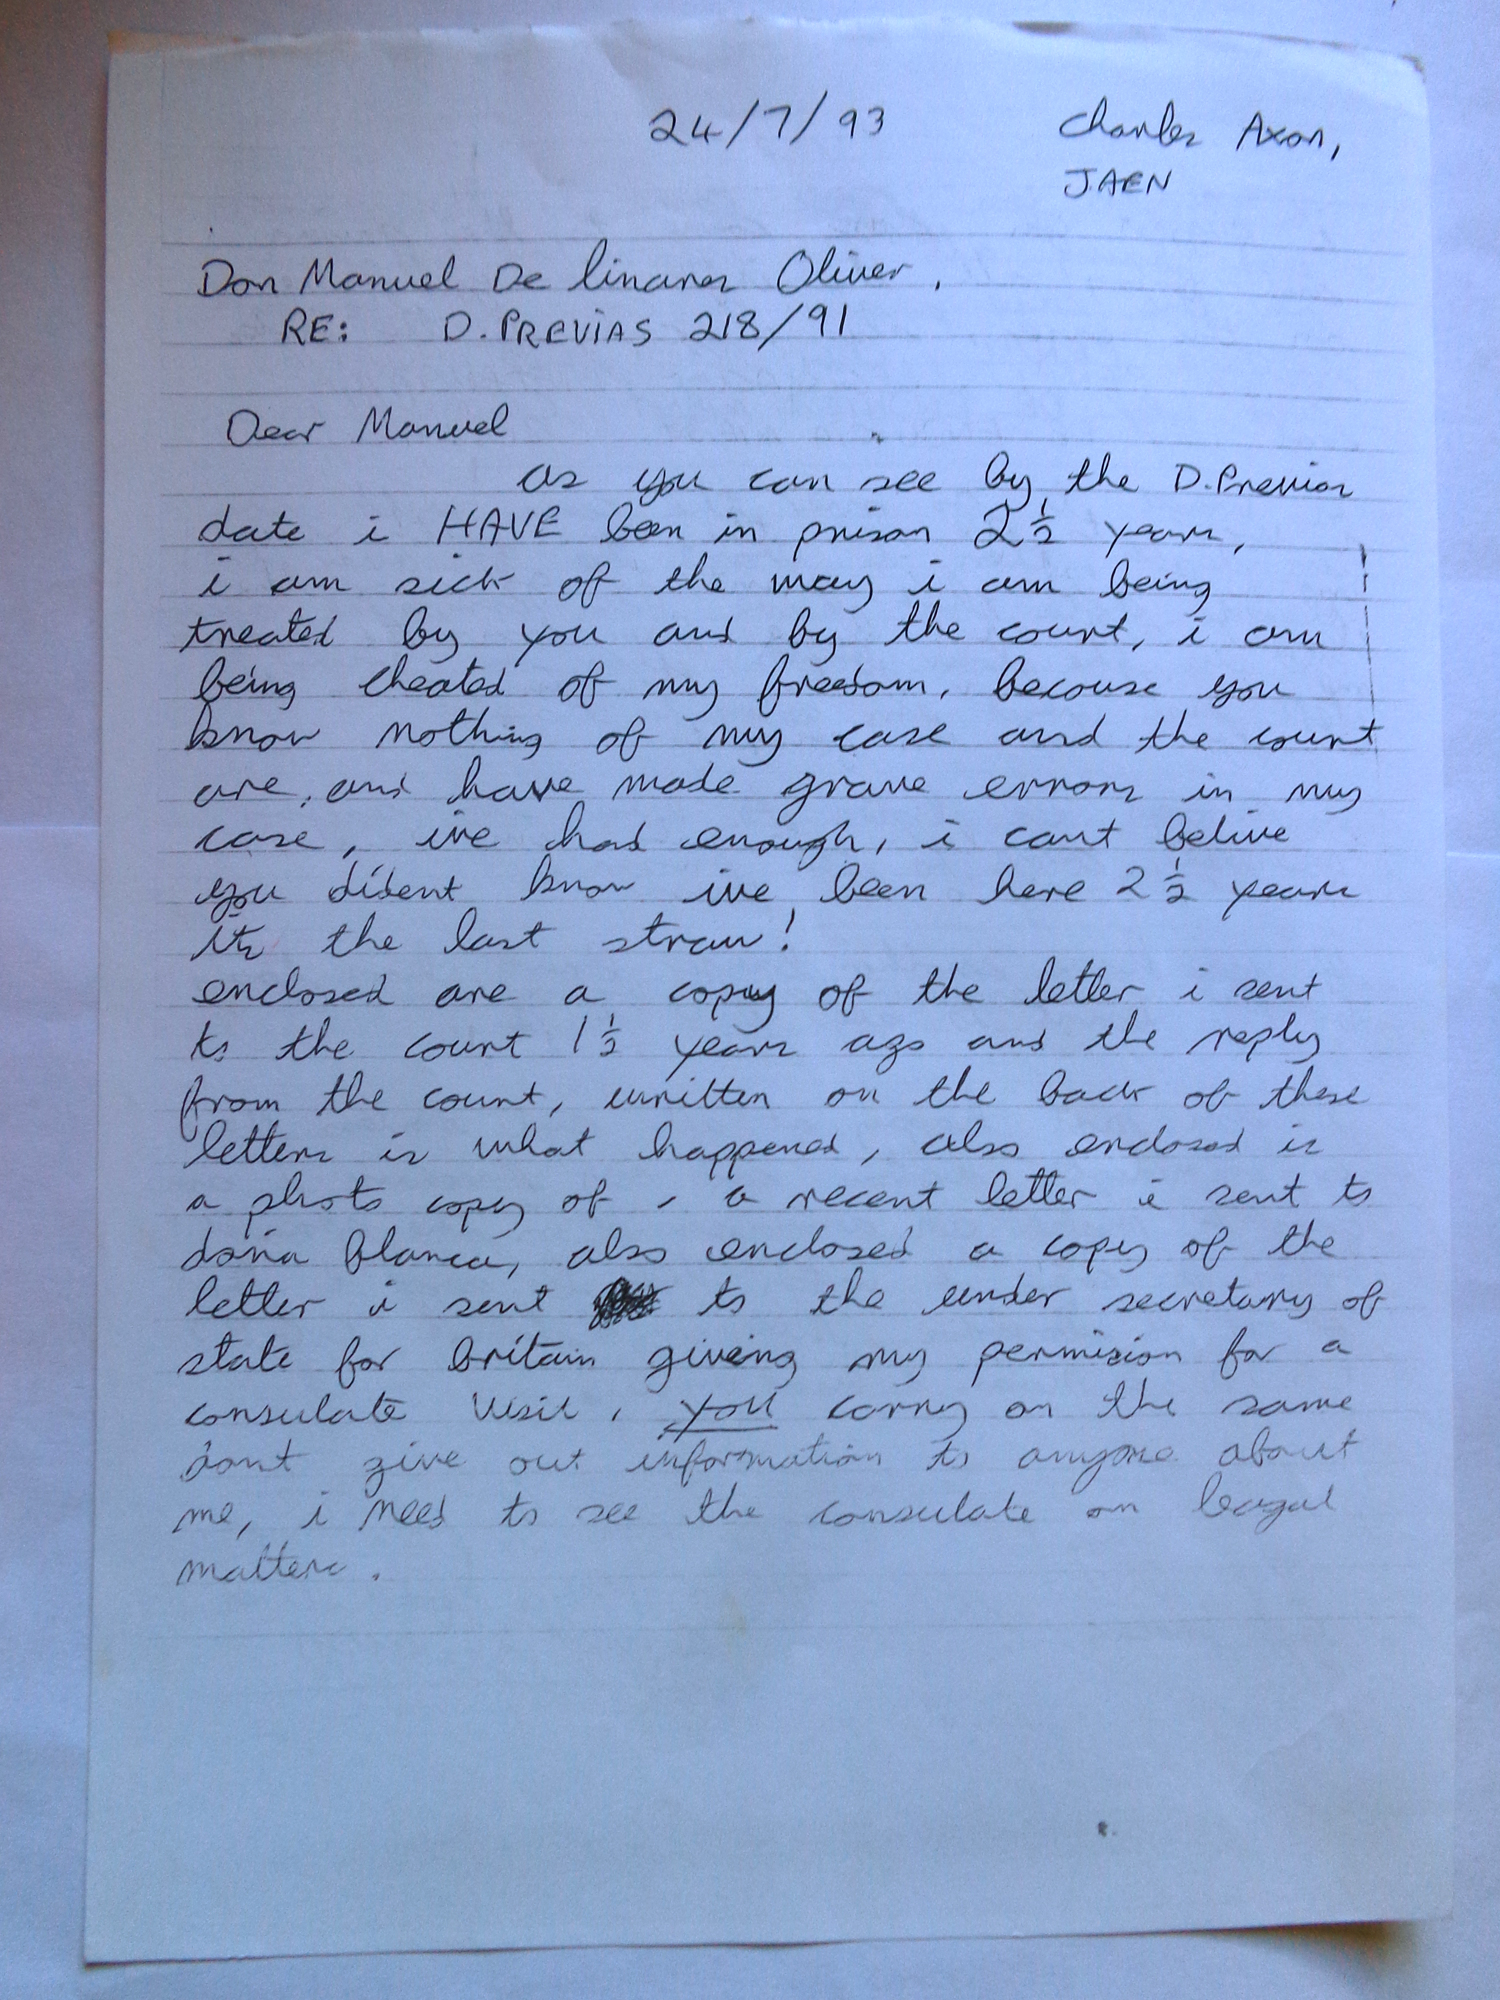 24/7/93 Charles Axon,
JAEN
Don Manuel De linares Oliver,
RE: D. PREVIAS 218/91
Dear Manuel
as you can see by the D. Previas
date i HAVE been in prison 2½ years,
i am sick of the way i am being
treated by you and by the court, i am
being cheated of my freedom, because you
know nothing of my case and the court
are, and have made grave errors in my
case, ive had enough, i cant belive
you dident know ive been here 2½ years
its the last straw!
enclosed are a copy of the letter i sent
to the court 1½ years ago and the reply
from the court, written on the back of these
letters is what happened, also enclosed is
a photo copy of, a recent letter i sent to
doña Blanca, also enclosed a copy of the
letter i sent to the under secretary of
state for britain giving my permision for a
consulate visit, you carry on the same
dont give out information to anyone about
me, i need to see the consulate on leagal
matters.